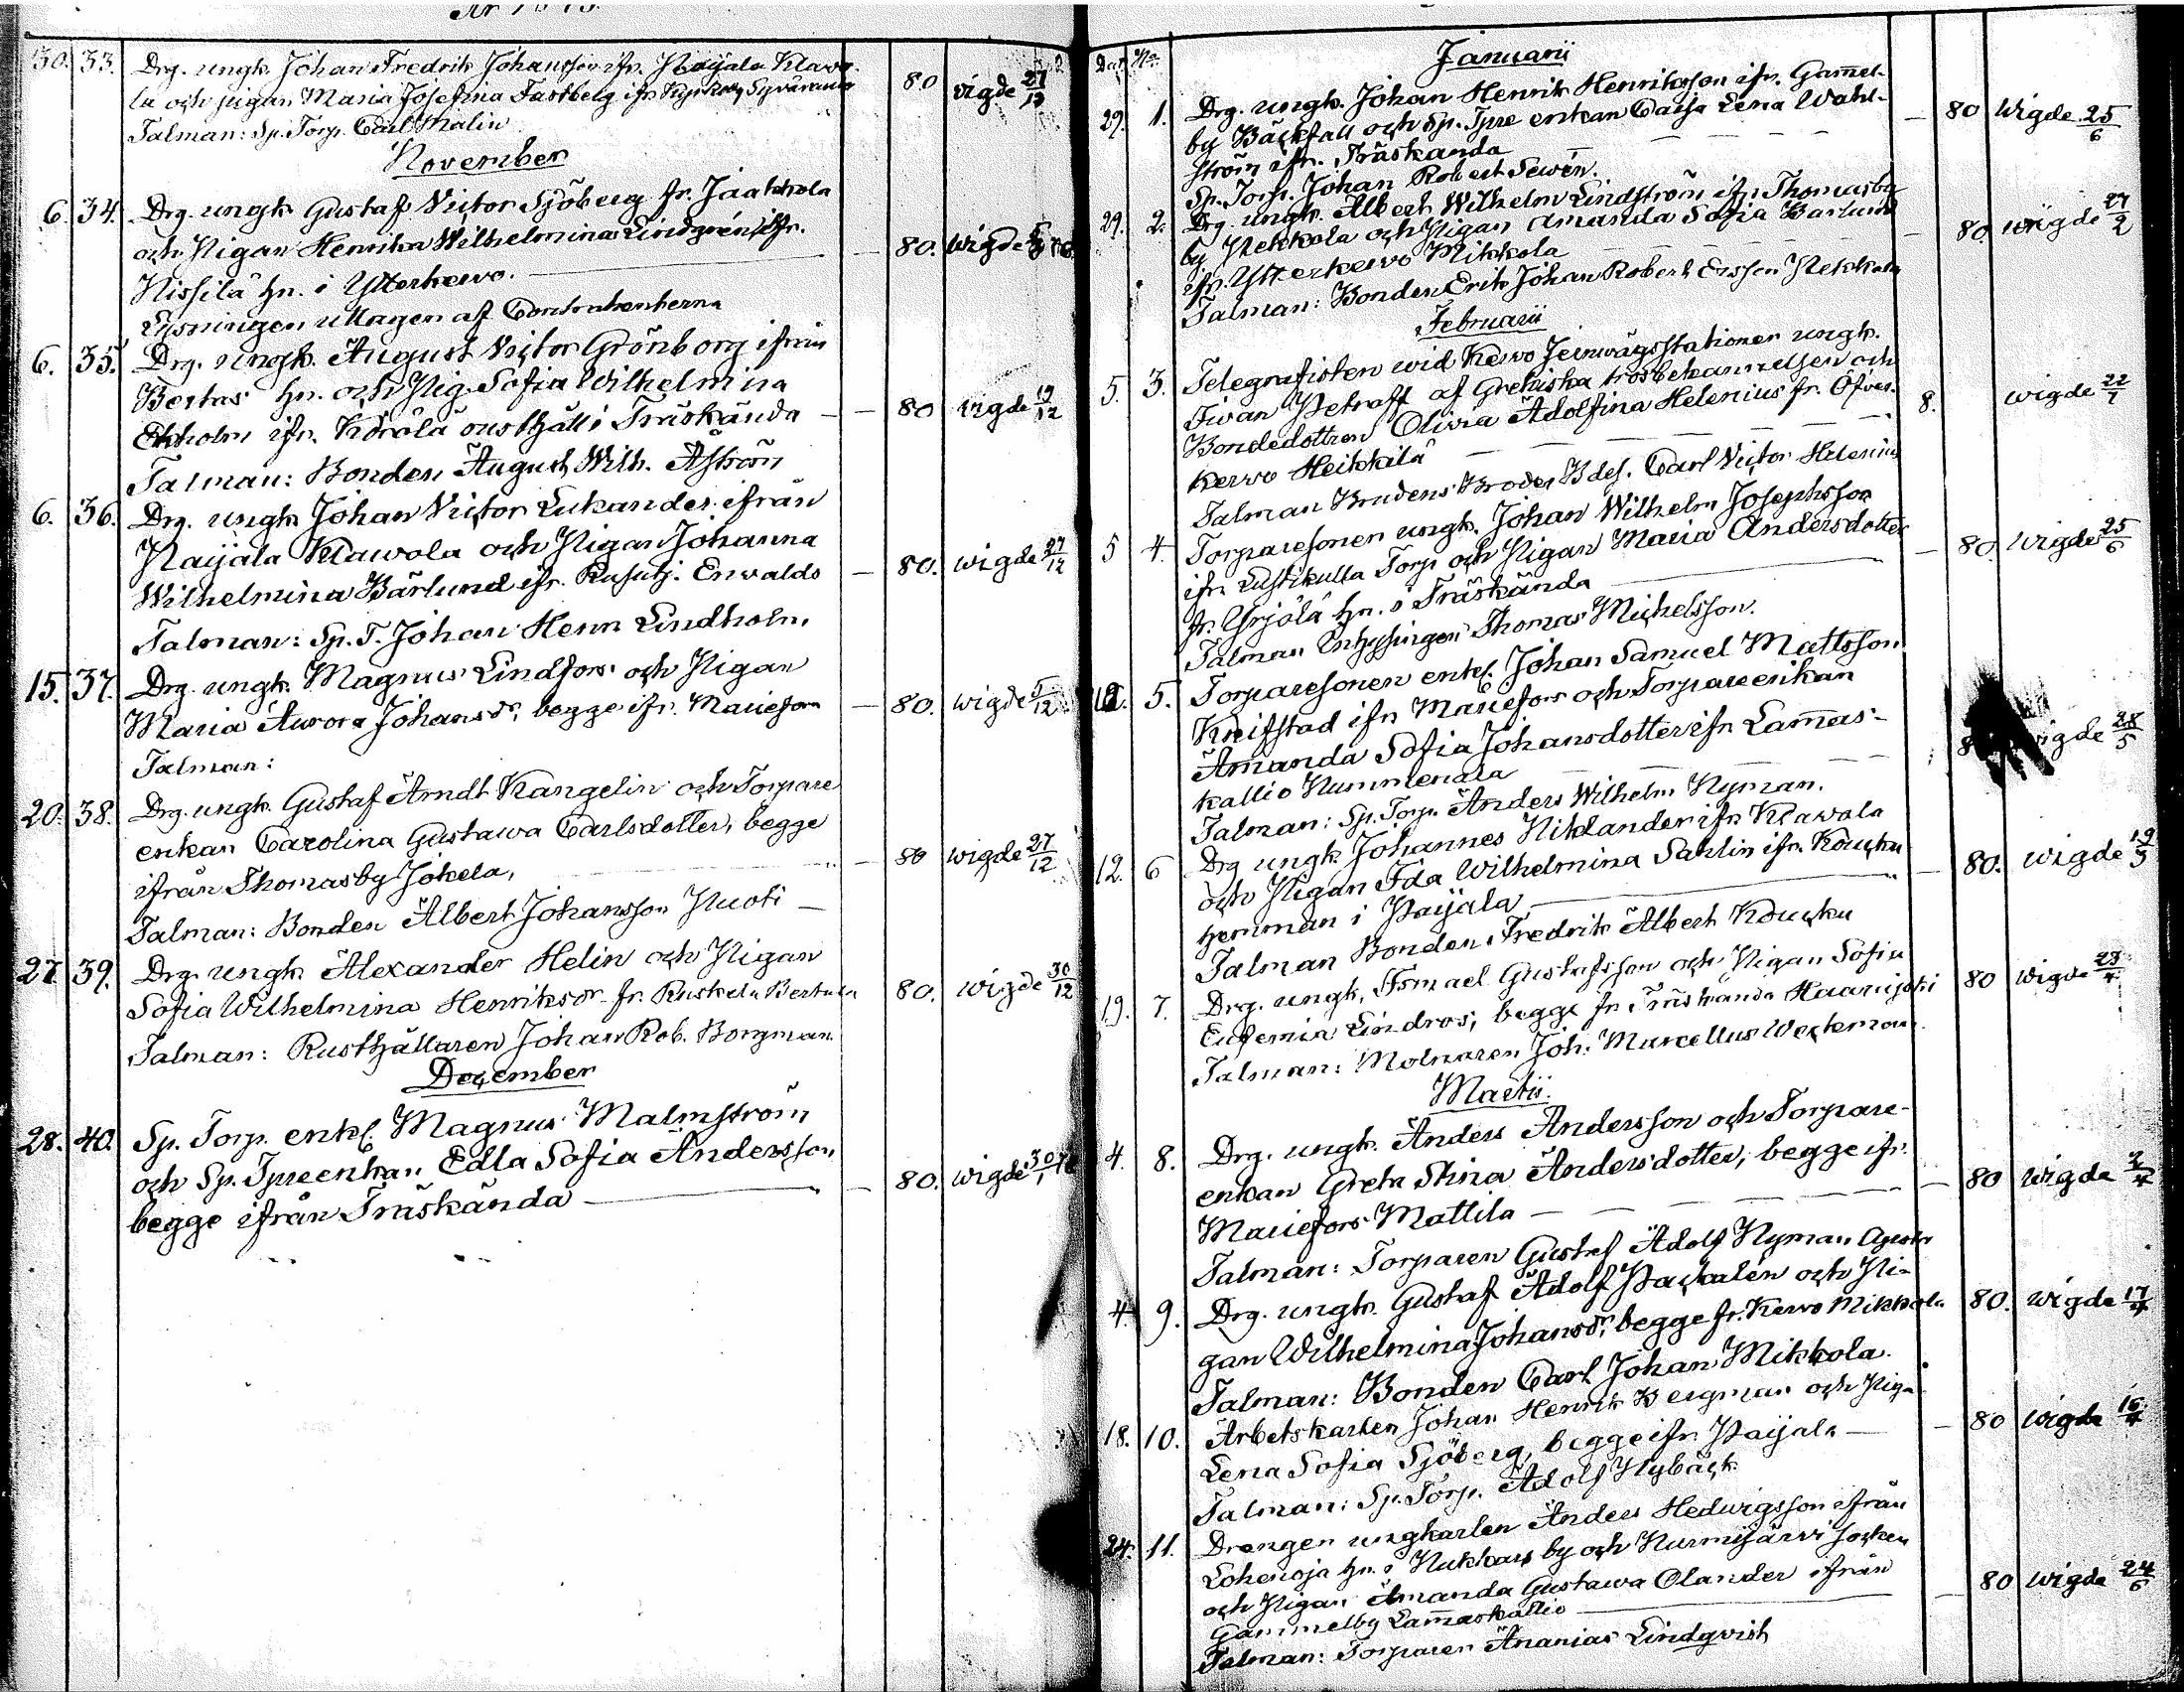 År 1875.
30. 33. Drg. ungk. Johan Fredrik Johansson ifr. Paijala Klawo-
la och pigan Maria Josefina Fastberg ifr. 80 vigde 27/12
Talman: Sp. Torp. Carl Malin
November
6. 34. Drg. ungk. Gustaf Victor Sjöberg fr. Jaakkola
och Pigan Henrika Wilhelmina Lindgrén ifr.
Nissilä hn. i Ytterkervo. — 80. wigde
Lysningen uttagen af Contrahenterna
6. 35. Drg. ungk. August Victor Grönborg ifrån
Bertas hn. och Pig. Sofia Wilhelmina
Ekholm ifr. Körölä rusthåll i Träskända — — 80 vigde 19/12
Talman: Bonden August Wilh. Åström
6. 36. Drg. ungk. Johan Victor Lukander ifrån
Paijala Klawola och Pigan Johanna
Wilhelmina Bärlund ifr. Rusutj. Enwalds — 80. wigde 27/12
Talman: Sp. T. Johan Henr. Lindholm.
15. 37. Drg. ungk. Magnus Lindfors och Pigan
Maria Aurora Johansdr, begge ifr. Mariefors — 80. wigde 5/12
Talman:
20. 38. Drg. ungk. Gustaf Arndt Kangelin och Torpare
enkan Carolina Gustawa Carlsdotter, begge
ifrån Thomasby Jokela, — 80 wigde 27/12
Talman: Bonden Albert Johansson Nuoti —
27. 39. Drg. ungk. Alexander Helin och Pigan
Sofia Wilhelmina Henriksdr. fr. Ruskela Bertula 80. wigde 30/12
Talman: Rusthållaren Johan Rob. Borgman.
December
28. 40. Sp. Torp. enkl. Magnus Malmström
och Sp. Tpreenkan Edla Sofia Andersson,
begge ifrån Träskända — 80. wigde 30/1
Dat. No.
Januarii
29. 1. Drg. ungk. Johan Henrik Henriksson ifr. Gam̄el-
by Bäckfall och Sp. Tpre enkan Cajsa Lena Wahl- — 80 Wigde 25/6
ström ifr. Träskanda
Sp. Torp. Johan Robert Sewén.
29. 2. Drg. ungk. Albert Wilhelm Lindström ifr. Thomasby
by Pekkola och Pigan Amanda Sofia Barlund — 80. wigde 27/2
ifr. Ytterkervo Mikkola
Talman: Bonden Erik Johan Robert Ersson Pekkola
Februarii
5. 3. Telegrafisten wid Kervo Jernwägsstationen ungk.
Iwan Petraff af Grekiska trosbekannelsen och
Bondedottren Olivia Adolfina Helenius fr. Öfver- 8. wigde 22/7
kervo Heikkilä
Talman Brudens Broder Bdes. Carl Victor Helenius
5 4. Torparesonen ungk. Johan Wilhelm Josephsson
ifr. Lustikulla Torp och Pigan Maria Andersdotter — 80. Wigde 25/6
fr. Yrjölä hn. i Träskända
Talman Inhysingen Thomas Michelsson.
5. Torparesonen enkl. Johan Samuel Mattsson
Knifstad ifr. Mariefors och Torpareenkan
Amanda Sofia Johansdotter ifr. Lam̄as- wigde 28/5
kallio Nummenala
Talman: Sp. Torp. Anders Wilhelm Nyman.
12. 6 Drg ungk Johannes Niklander ifr. Klawola
och Pigan Ida Wilhelmina Sahlin ifr. Koucku — 80. wigde 19/3
hemman i Paijala
Talman Bonden Fredrik Albert Koucku
19. 7. Drg. ungk. Ismael Gustafsson och Pigan Sofia
Eufemia Lindros, begge fr. Träskända Haarijoki 80 wigde 23/4
Talman: Mölnaren Joh. Marcellus Westerman.
Martii.
4. 8. Drg. ungk. Anders Andersson och Torpare-
enkan Greta Stina Andersdotter, begge ifr.
Mariefors Mattila — 80 wigde 2/4
Talman: Torparen Gustaf Adolf Nyman
4. 9. Drg. ungk. Gustaf Adolf Packalén och Pi-
gan Wilhelmina Johansdr, begge fr. Kervo Mikkola 80. wigde 17/4
Talman: Bonden Carl Johan Mikkola.
18. 10. Arbetskarlen Johan Henrik Bergman och Piga
Lena Sofia Sjöberg, begge ifr. Paijala — 80 wigde 16/4
Talman: Sp. Torp. Adolf Nybäck
24. 11. Drengen ungkarlen Anders Hedwigsson ifrån
Lohenoja hn. i Nukkars by och Nurmijärvi socken
och Pigan Amanda Gustawa Olander ifrån — 80 wigde 24/6
Gammelby Lam̄askallio
Talman: Torparen Ananias Lindqvist